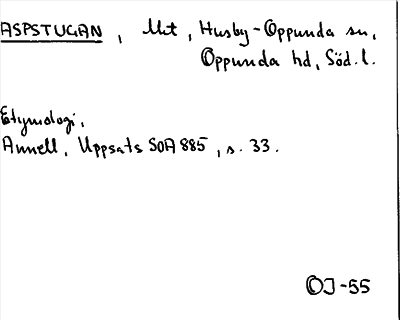 ASPSTUGAN, Mt, Husby-Oppunda sn,
Oppunda hd, Söd. l.
Etymologi.
Annell, Uppsats SOA 885, s. 33.
OJ-55